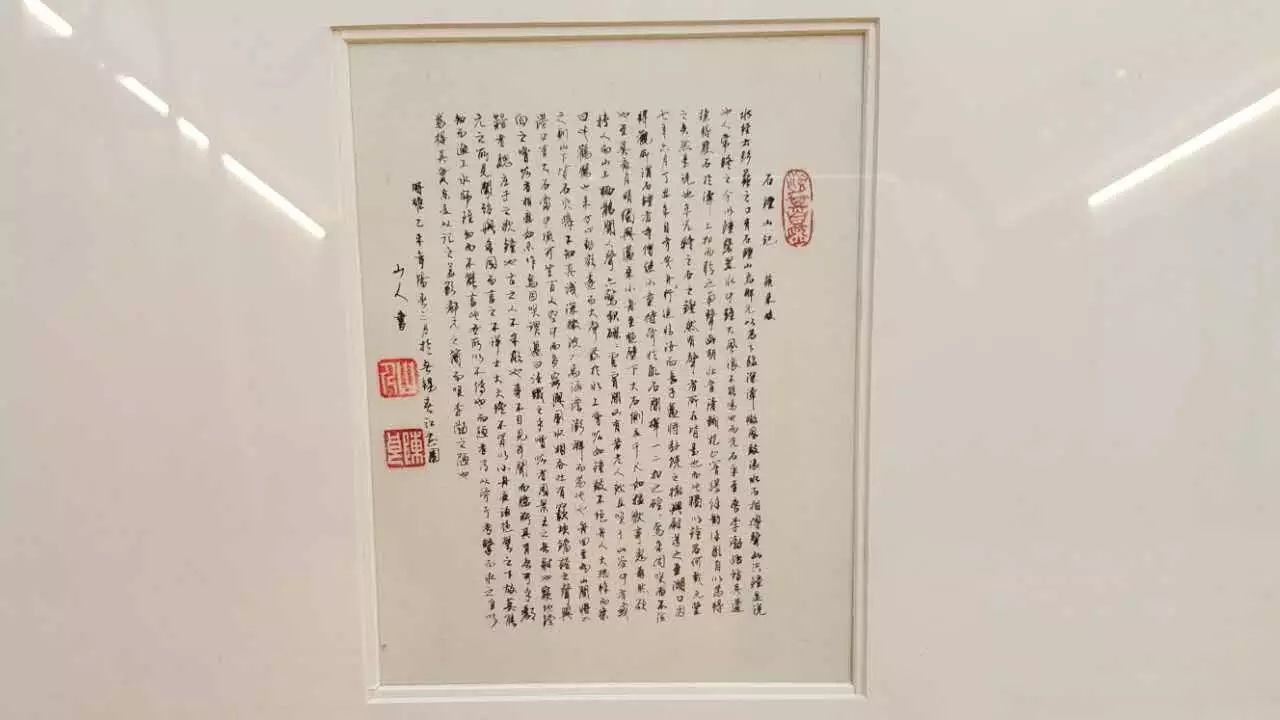 石鐘山記 蘇東坡
水經云彭蠡之口有石鐘山焉酈元以為下臨深潭微風鼓浪水石相搏聲如洪鐘是說
也人常疑之今以鐘磬置水中雖大風浪不能鳴也而況石乎至唐李渤始訪其遺
蹤得雙石於潭上扣而聆之南聲函胡北音清越枹止響騰餘韻徐歇自以為得
之矣然是說也余尤疑之石之鏗然有聲者所在皆是也而此獨以鐘名何哉元豐
七年六月丁丑余自齊安舟行適臨汝而長子邁將赴饒之德興尉送之至湖口因
得觀所謂石鐘者寺僧使小童持斧於亂石間擇一二扣之硿硿焉余固笑而不信
也至莫夜月明獨與邁乘小舟至絕壁下大石側立千尺如猛獸奇鬼森然欲
搏人而山上栖鶻聞人聲亦驚起磔磔雲霄間又有若老人欬且笑于山谷中者或
曰此鸛鶴也余方心動欲還而大聲發於水上噌吰如鐘鼓不絕舟人大恐徐而察
之則山下皆石穴罅不知其淺深微波入焉涵澹澎湃而為此也舟回至兩山間將入
港口有大石當中流可坐百人空中而多竅與風水相吞吐有窾坎鏜鞳之聲與
向之噌吰者相應如樂作焉因笑謂邁曰汝識之乎噌吰者周景王之無射也窾坎鏜
鞳者魏莊子之歌鐘也古之人不余欺也事不目見耳聞而臆斷其有無可乎酈
元之所見聞殆與余同而言之不詳士大夫終不肯以小舟夜泊絕壁之下故莫能
知而漁工水師雖知而不能言此世所以不傳也而陋者乃以斧斤考擊而求之自以
為得其實余是以記之蓋歎酈元之簡而笑李渤之陋也
時維乙未年陽春三月於春江花園
山人書
山人